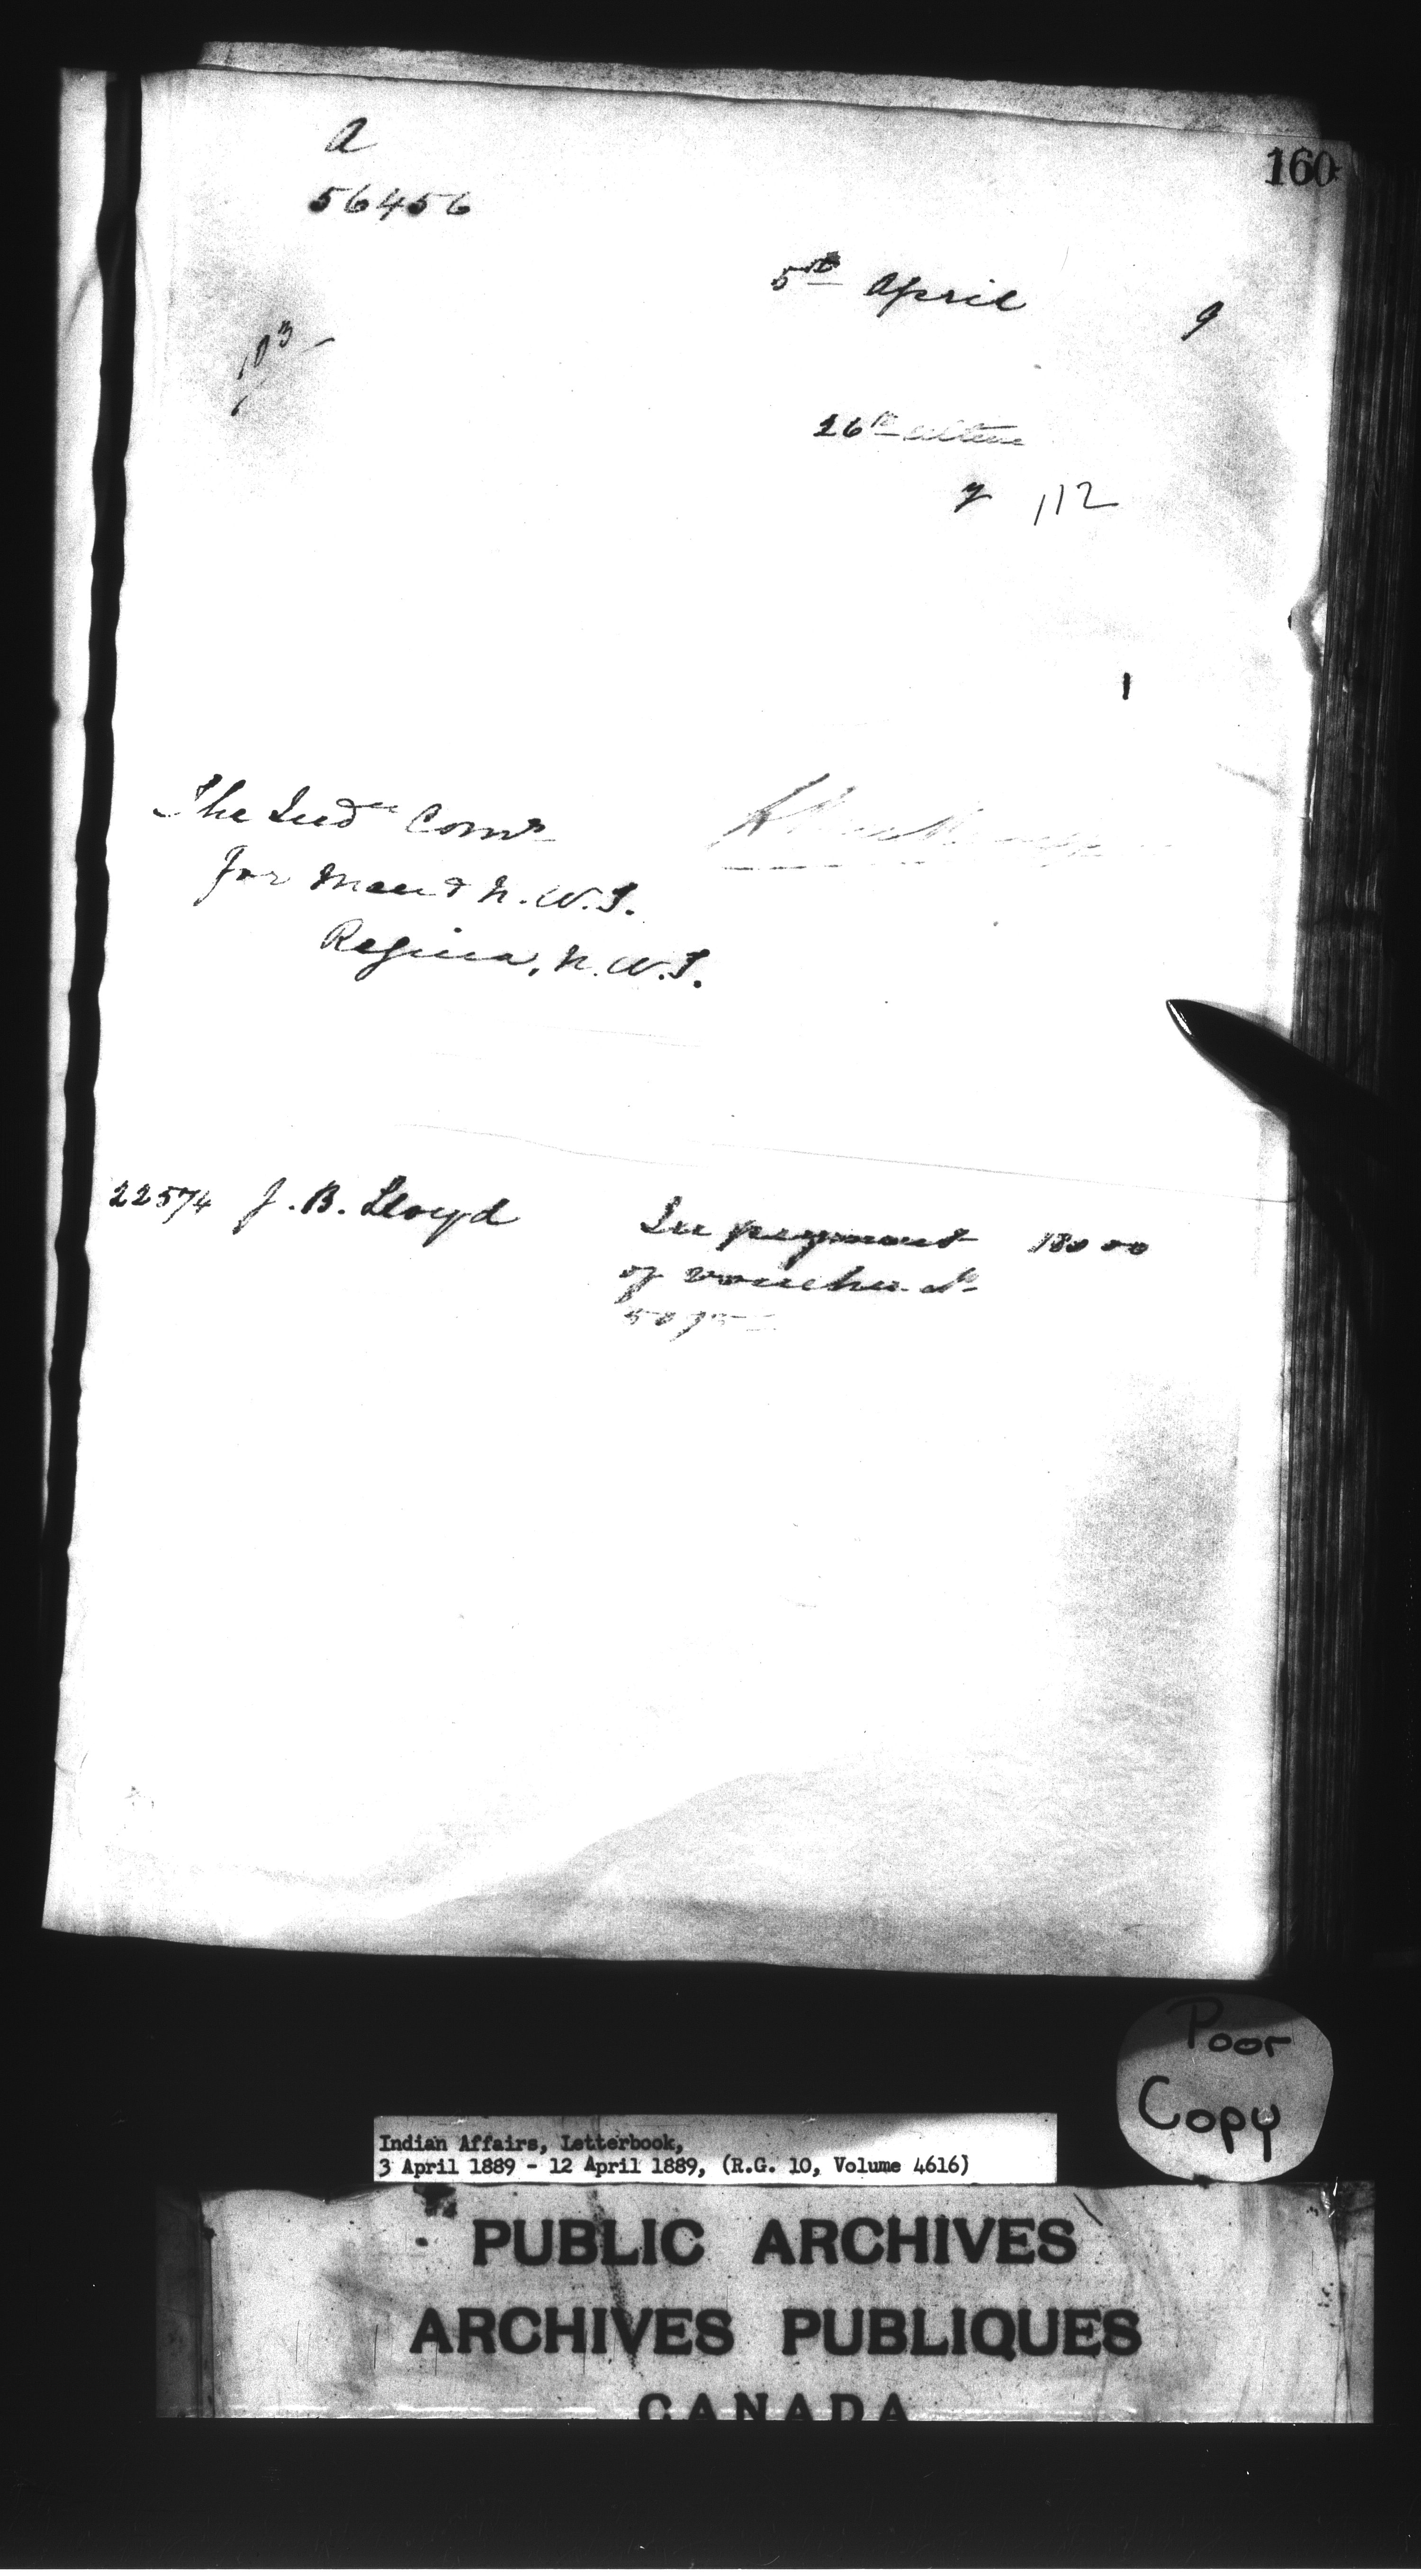 160
a
56456
5th April 9
103
26th ultimo
y 112
1
The Indn Comr
for Man & N.W.T.
Regina, N.W.T.
22574 J. B. Lloyd In payment 180 00
of voucher No
5075
Poor
Copy
Indian Affairs, Letterbook,
3 April 1889 - 12 April 1889, (R.G. 10, Volume 4616)
PUBLIC ARCHIVES
ARCHIVES PUBLIQUES
CANADA